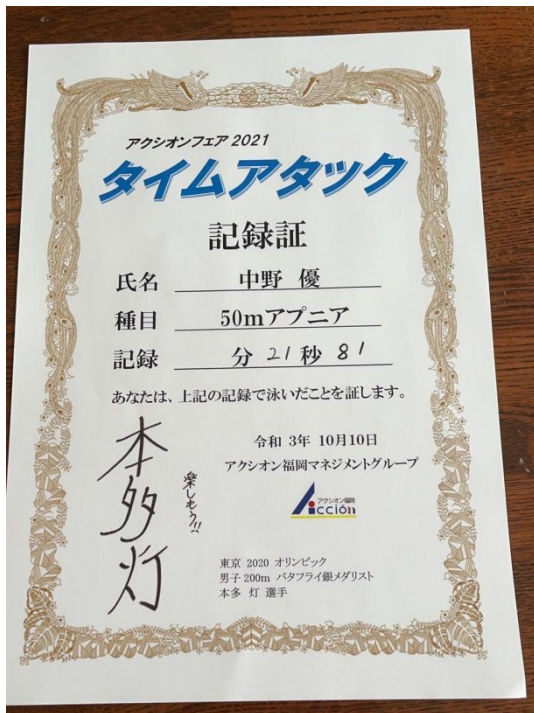 アクシオンフェア 2021
タイムアタック
記録証
氏名 中野 優
種目 50mアプニア
記録 分 21 秒 81
あなたは、上記の記録で泳いだことを証します。
令和 3年 10月10日
アクシオン福岡マネジメントグループ
アクシオン福岡
Acción
本多灯
楽しもう!!
東京 2020 オリンピック
男子 200m バタフライ銀メダリスト
本多 灯 選手